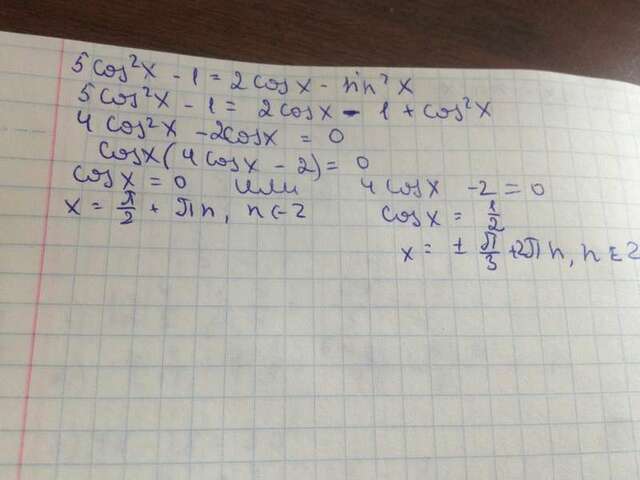 5 cos²x - 1 = 2 cos x - sin²x
5 cos²x - 1 = 2 cos x - 1 + cos²x
4 cos²x - 2cos x = 0
cos x (4 cos x - 2) = 0
cos x = 0 или 4 cos x - 2 = 0
x = π/2 + πn, n ∈ Z cos x = 1/2
x = ± π/3 + 2πn, n ∈ Z